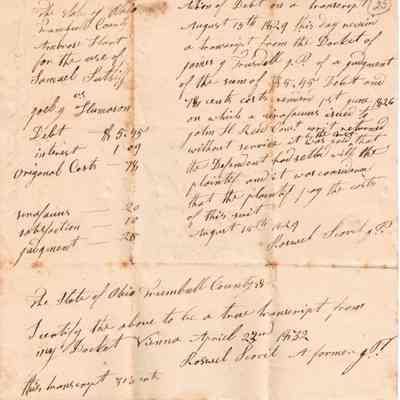 The State of Ohio
Trumbull County
Ambrose Hart
for the use of
Samuel
vs
Joel
Debt — $5.45
interest 1 09
Origonal Costs — 78
20
satisfaction — 10
judgment — 25
Action of Debt on a transcript 25
August 15th 1829 this day
a transcript from the Docket of
James g J.P. of a judgment
of the sum of $5.45 Debt and
78 cents costs 1st June 1826
on which a issued to
John H. Const and returned
without service it was that
the Defendant had settled with the
plaintiff and it was
that the plaintiff pay the costs
of this suit
August 15th 1829
Roswel Scovil J.P.
The State of Ohio Trumbull County ss
I certify the above to be a true transcript from
my Docket Vienna April 23rd 1832
Roswel Scovil A former J.P.
this transcript cents